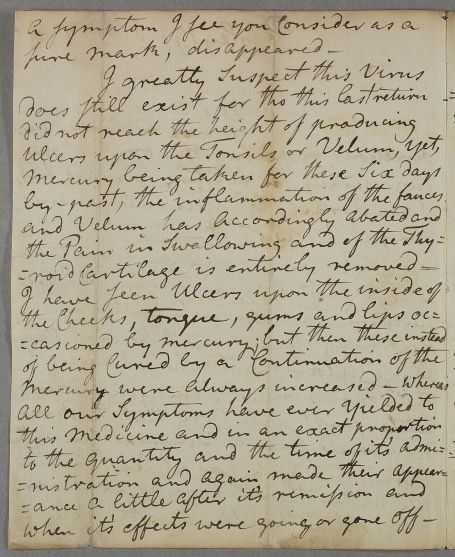 a symptom I see you Consider as a
sure mark, disappeared —
I greatly Suspect this Virus
does still exist for tho this last return
did not reach the height of producing
Ulcers upon the Tonsils or Velum, yet,
Mercury being taken for these Six days
by-past, the inflammation of the fauces
and Velum has accordingly abated and
the Pain in Swallowing and of the Thy=
=roid Cartilage is entirely removed —
I have seen Ulcers upon the inside of
the Cheeks, tongue, gums and lips oc=
=casioned by mercury; but then these instead
of being Cured by a Continuation of the
Mercury were always increased — whereas
all our Symptoms have ever yielded to
this Medicine and in an exact proportion
to the quantity and the time of its admi=
=nistration and again made their appear=
=ance a little after its remission and
when it's effects were going or gone off —